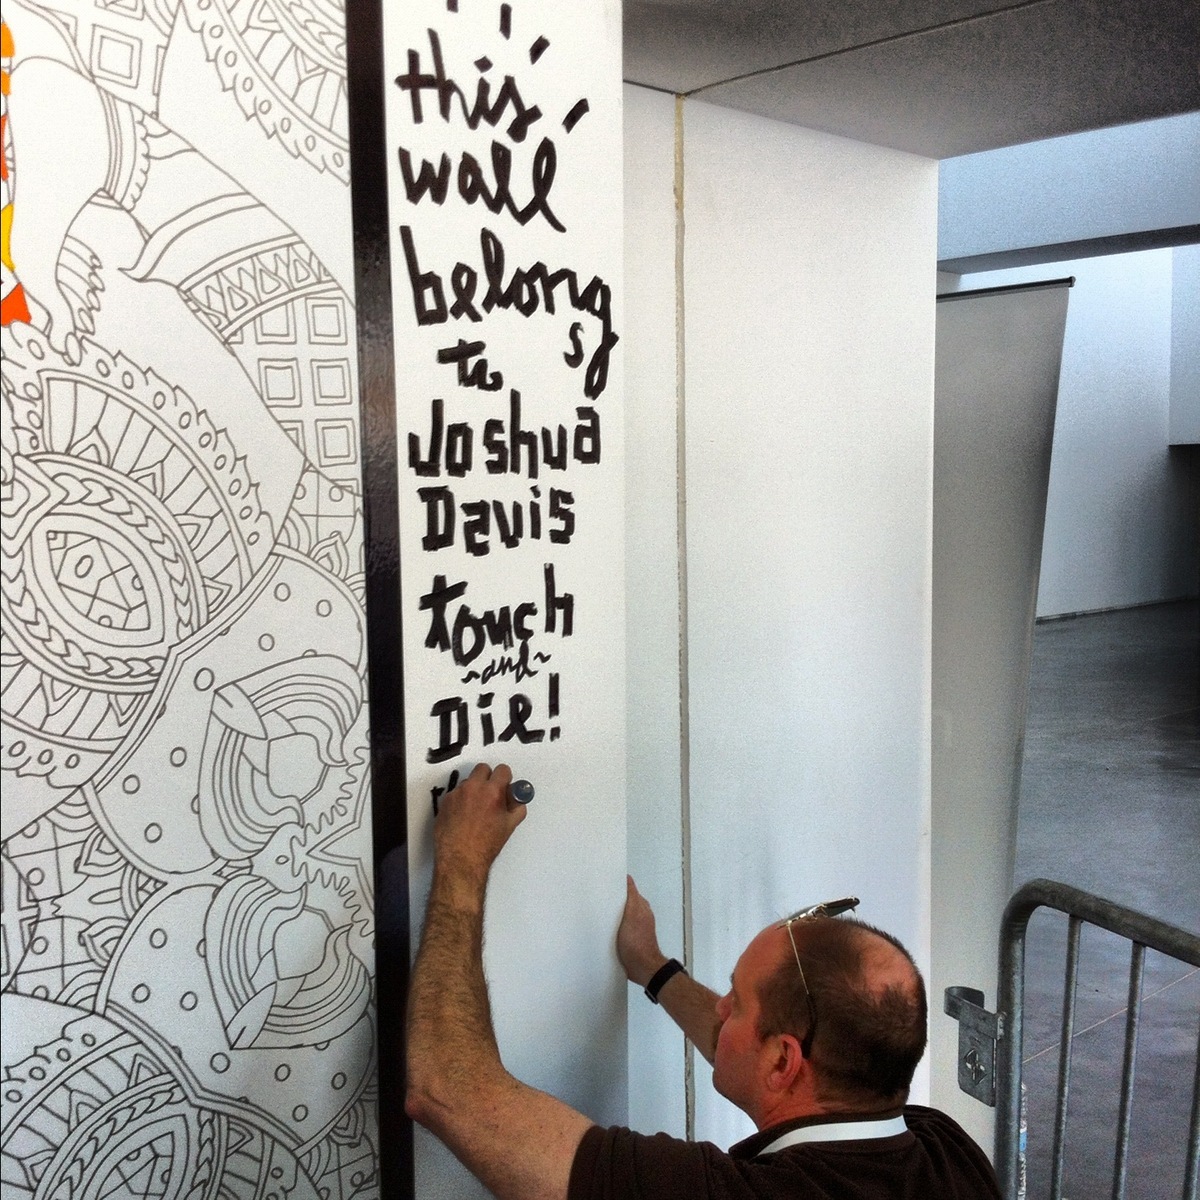 this
wall
belongs
to
Joshua
Davis
touch
~and~
Die!